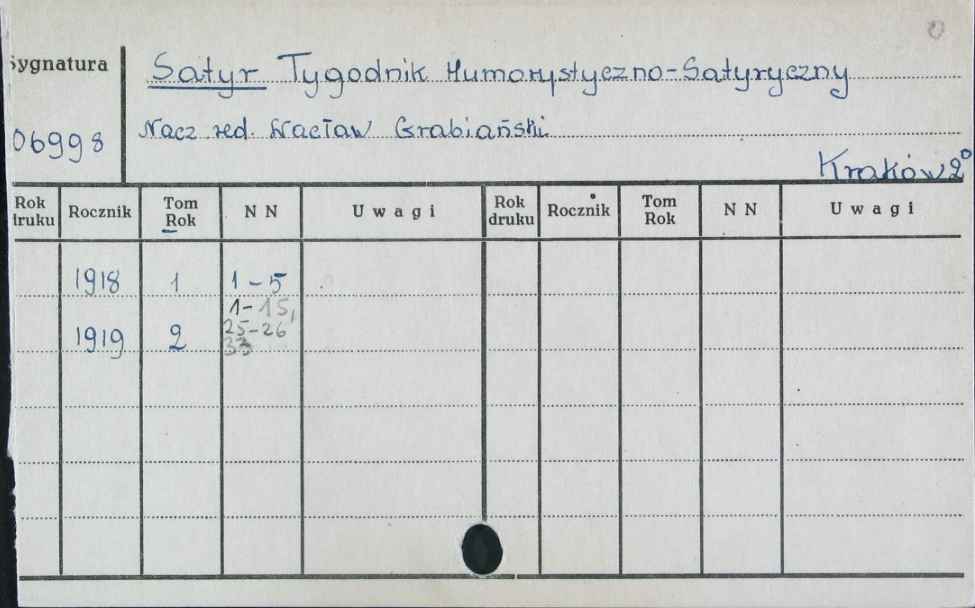 Sygnatura
Satyr Tygodnik Humorystyczno-Satyryczny
06998
Nacz red. Wacław Grabiański
Kraków 2°
Rok druku Rocznik Tom Rok N N Uwagi Rok druku Rocznik Tom Rok N N Uwagi
1918 1 1-5
1919 2 1-15, 25-26 33